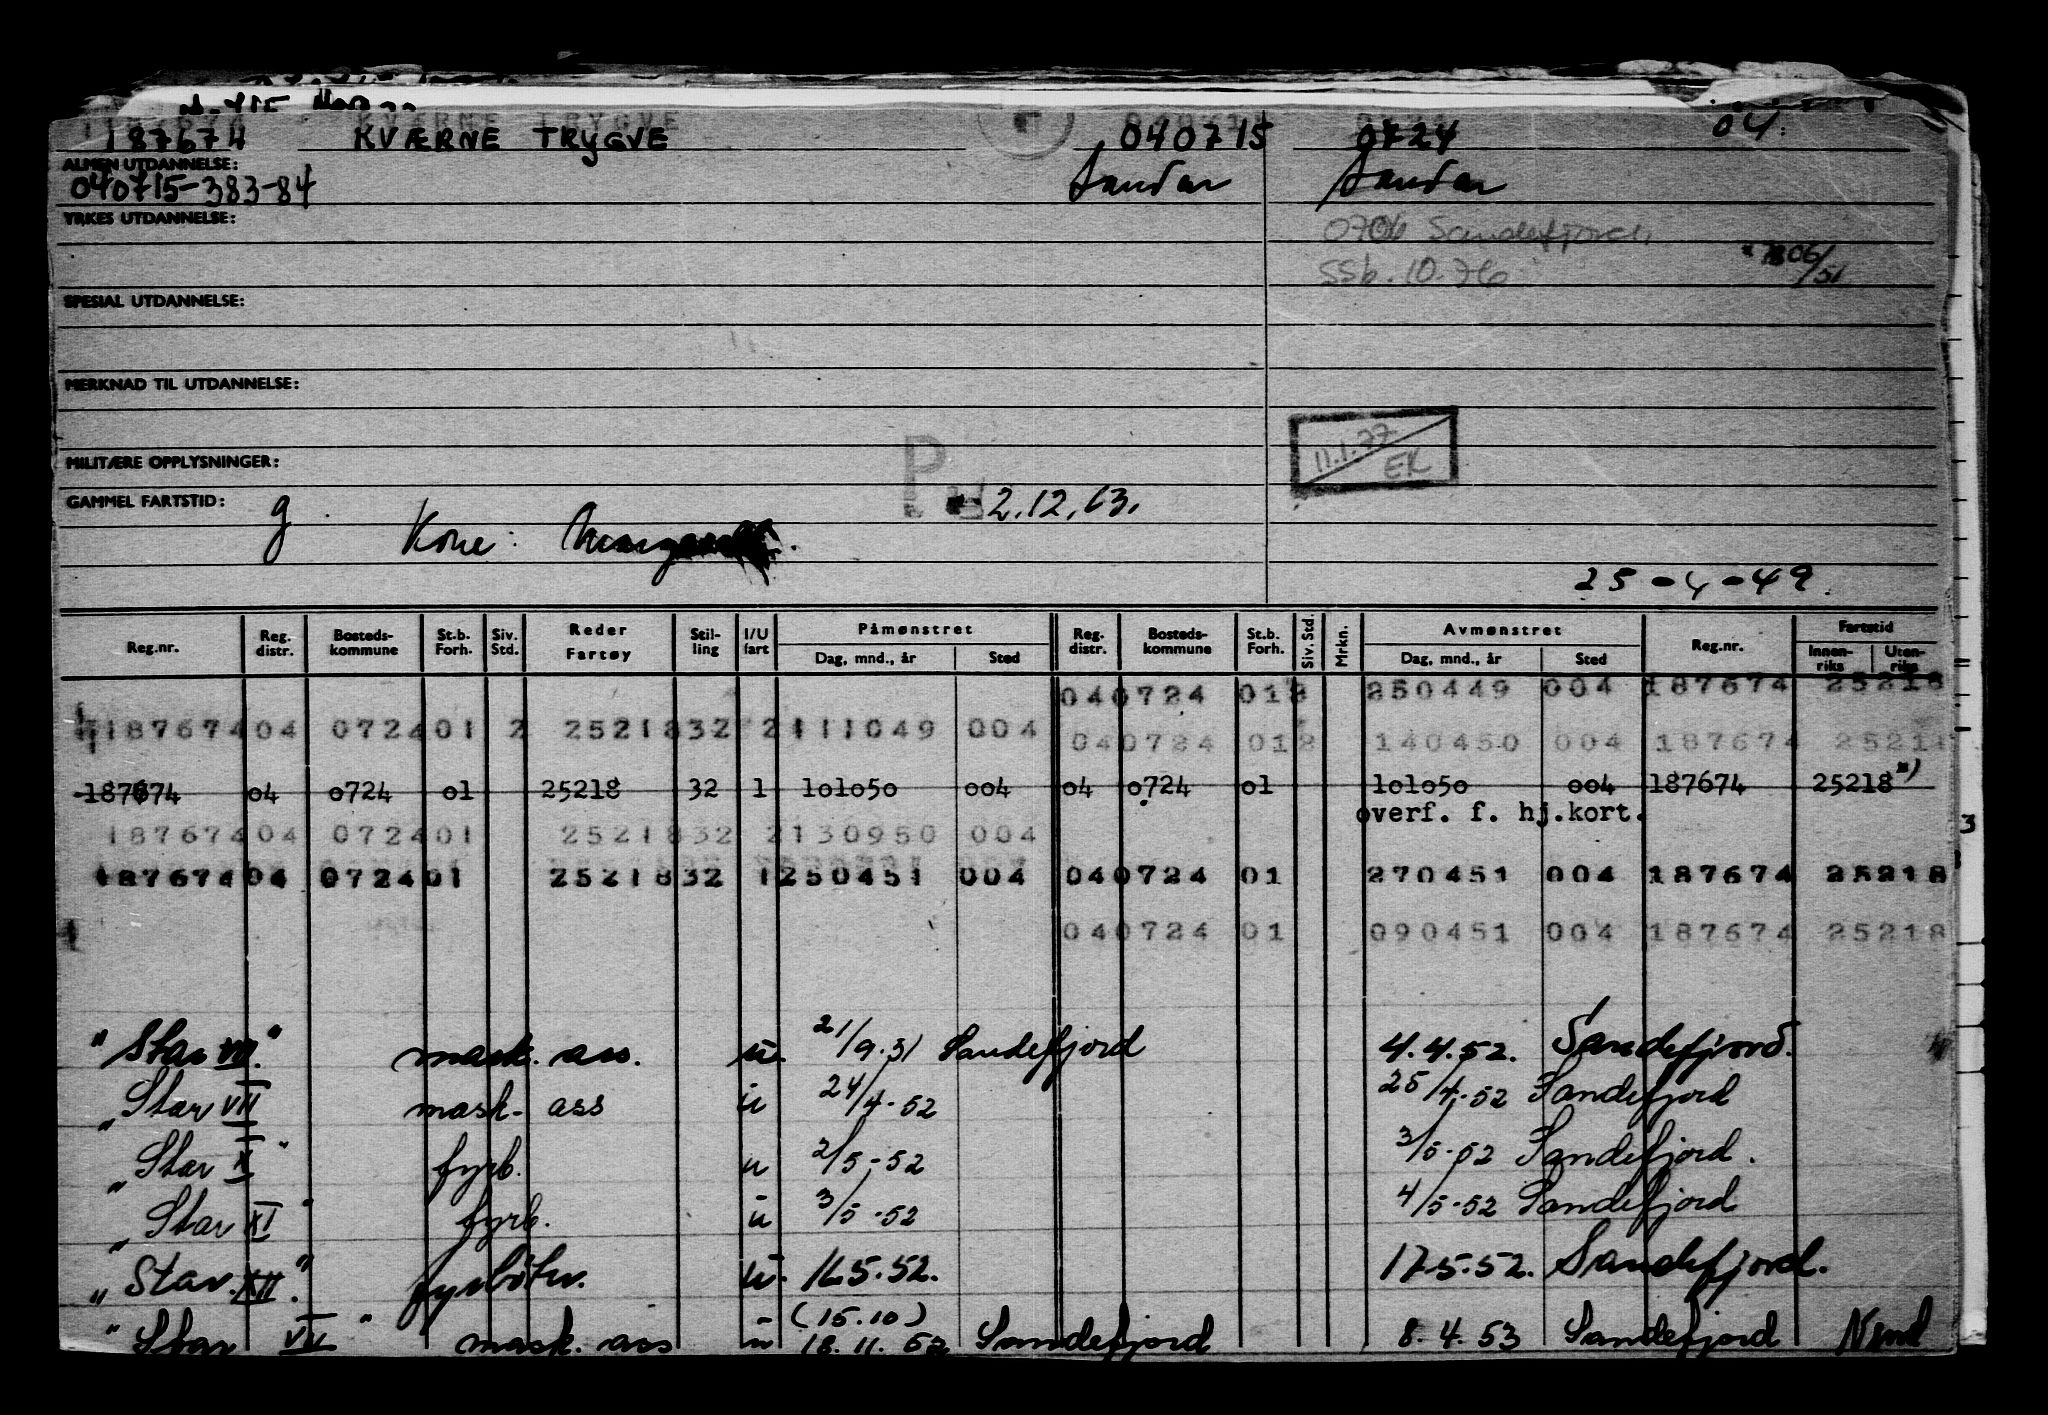 187674 KVÆRNE TRYGVE 040715 0724 04
ALMEN UTDANNELSE:
040715-383-84 Sandar Sandar
YRKES UTDANNELSE:
0706 Sandefjord
SSb. 10.76 06/51
SPESIAL UTDANNELSE:
MERKNAD TIL UTDANNELSE:
11.1.77
EK
MILITÆRE OPPLYSNINGER:
GAMMEL FARTSTID: g 2.12.63.
Kone:
25-4-49.
Reg.nr. Reg. distr. Bosteds-kommune St.b. Forh. Siv. Std. Reder Fartøy Stil-ling I/U fart Påmønstret Dag, mnd., år Sted Reg. distr. Bosteds-kommune St.b. Forh. Siv. Std. Mrkn. Avmønstret Dag, mnd., år Sted Reg.nr. Fartstid Innen-riks Uten-riks
040724 012 250449 004 187674 25218
187674 04 0724 01 2 25218 32 2 111049 004
040724 012 140450 004 187674 25218
187674 04 0724 01 25218 32 1 101050 004 04 0724 01 101050 004 187674 25218 x)
overf. f. hj.kort.
187674 04 0724 01 25218 32 2 130950 004
187674 04 0724 01 25218 32 1 250451 004 040724 01 270451 004 187674 25218
040724 01 090451 004 187674 25218
3
"Star VII." mask. ass. u. 21/9.51 Sandefjord 4.4.52. Sandefjord.
"Star VII mask. ass u 24/4-52 25/4-52 Sandefjord
"Star X" fyrb. u 2/5-52 3/5-52 Sandefjord.
"Star XI" fyrb. u 3/5-52 4/5-52 Sandefjord
"Star XII." fyrbøter. u. 16.5.52. 17-5-52. Sandefjord.
(15.10)
"Star VII" mask. ass u 18.11.52 Sandefjord 8.4.53 Sandefjord